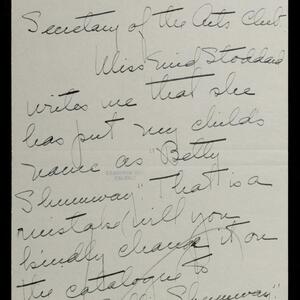 Secretary of the Arts Club
Miss Enid Stoddard
writes me that she
has put my childs
name as "Betty
Shumway". That is a
mistake will you
kindly change it on
the catalogue to
Shumway"